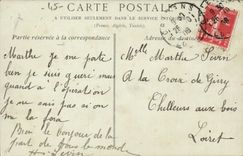 45-
CARTE POSTALE
A UTILISER SEULEMENT DANS LE SERVICE INTÉRIEUR
(France, Algérie, Tunisie)
Partie réservée à la correspondance
Adresse du destinataire
Marthe je me porte
bien je suis guéri mais
quand à l'opération
je ne sais pas si on me
la fera
Bien le bonjour de la
part de tous le monde
Melle Marthe
A la Croix de Giry
Chilleurs aux bois
Loiret